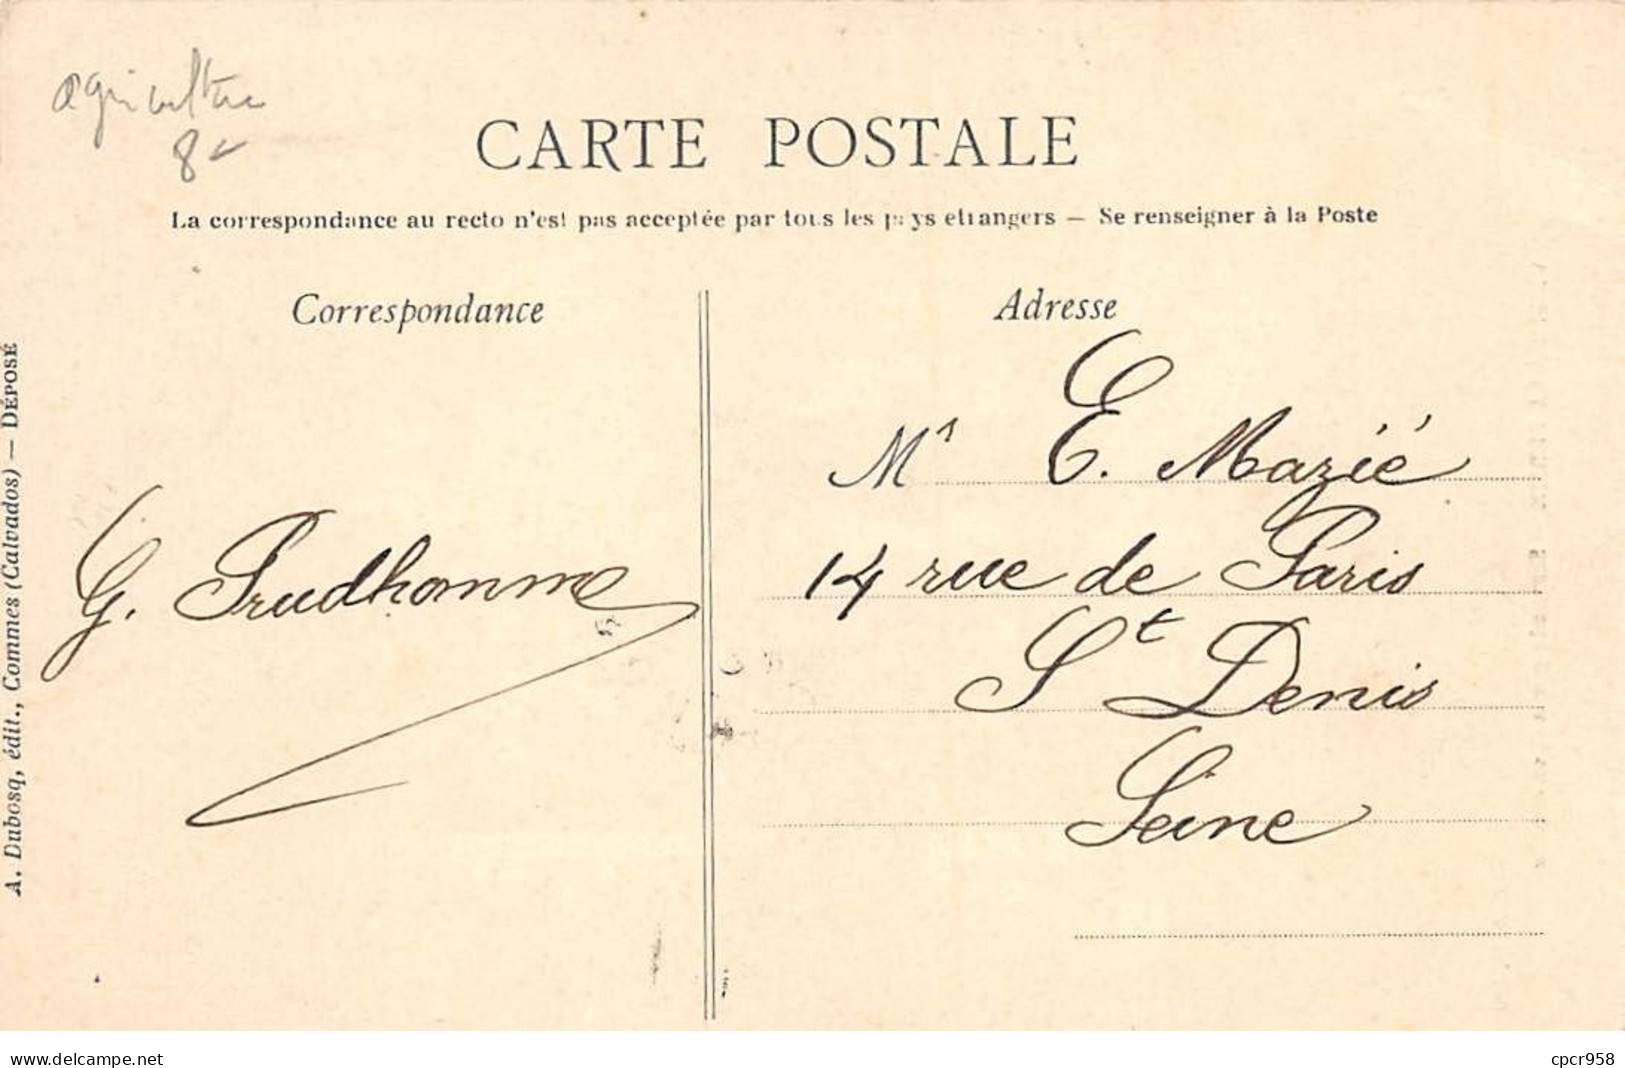 agriculture
8
CARTE POSTALE
La correspondance au recto n'est pas acceptée par tous les pays étrangers — Se renseigner à la Poste
Correspondance
Adresse
A. Dubosq, édit., Commes (Calvados) — DÉPOSÉ
G. Prudhomme
Mr E. Mazié
14 rue de Paris
St Denis
Seine
www.delcampe.net
cpcr958